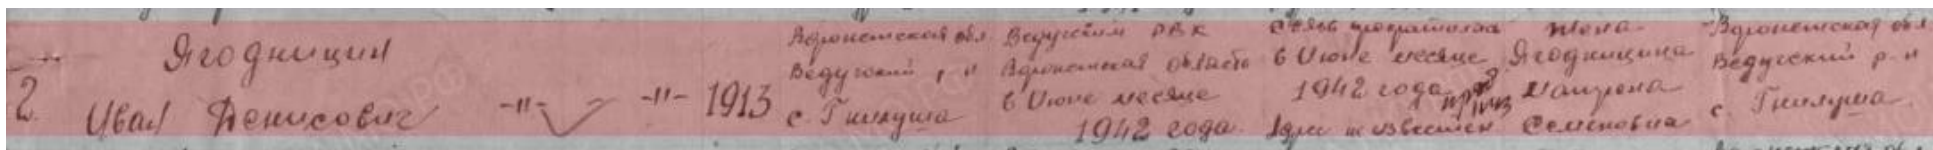 2
Ягодницин
Иван Денисович
-"-
-"- 1913
Воронежская обл
Ведугский р-н
с. Гнилуша
Ведугским РВК
Воронежская область
в Июне месяце
1942 года.
Связь прекратилась
в Июне месяце
1942 года
Адрес не известен
жена
Ягодницина
Матрена
Семеновна
Воронежская обл
Ведугский р-н
с. Гнилуша